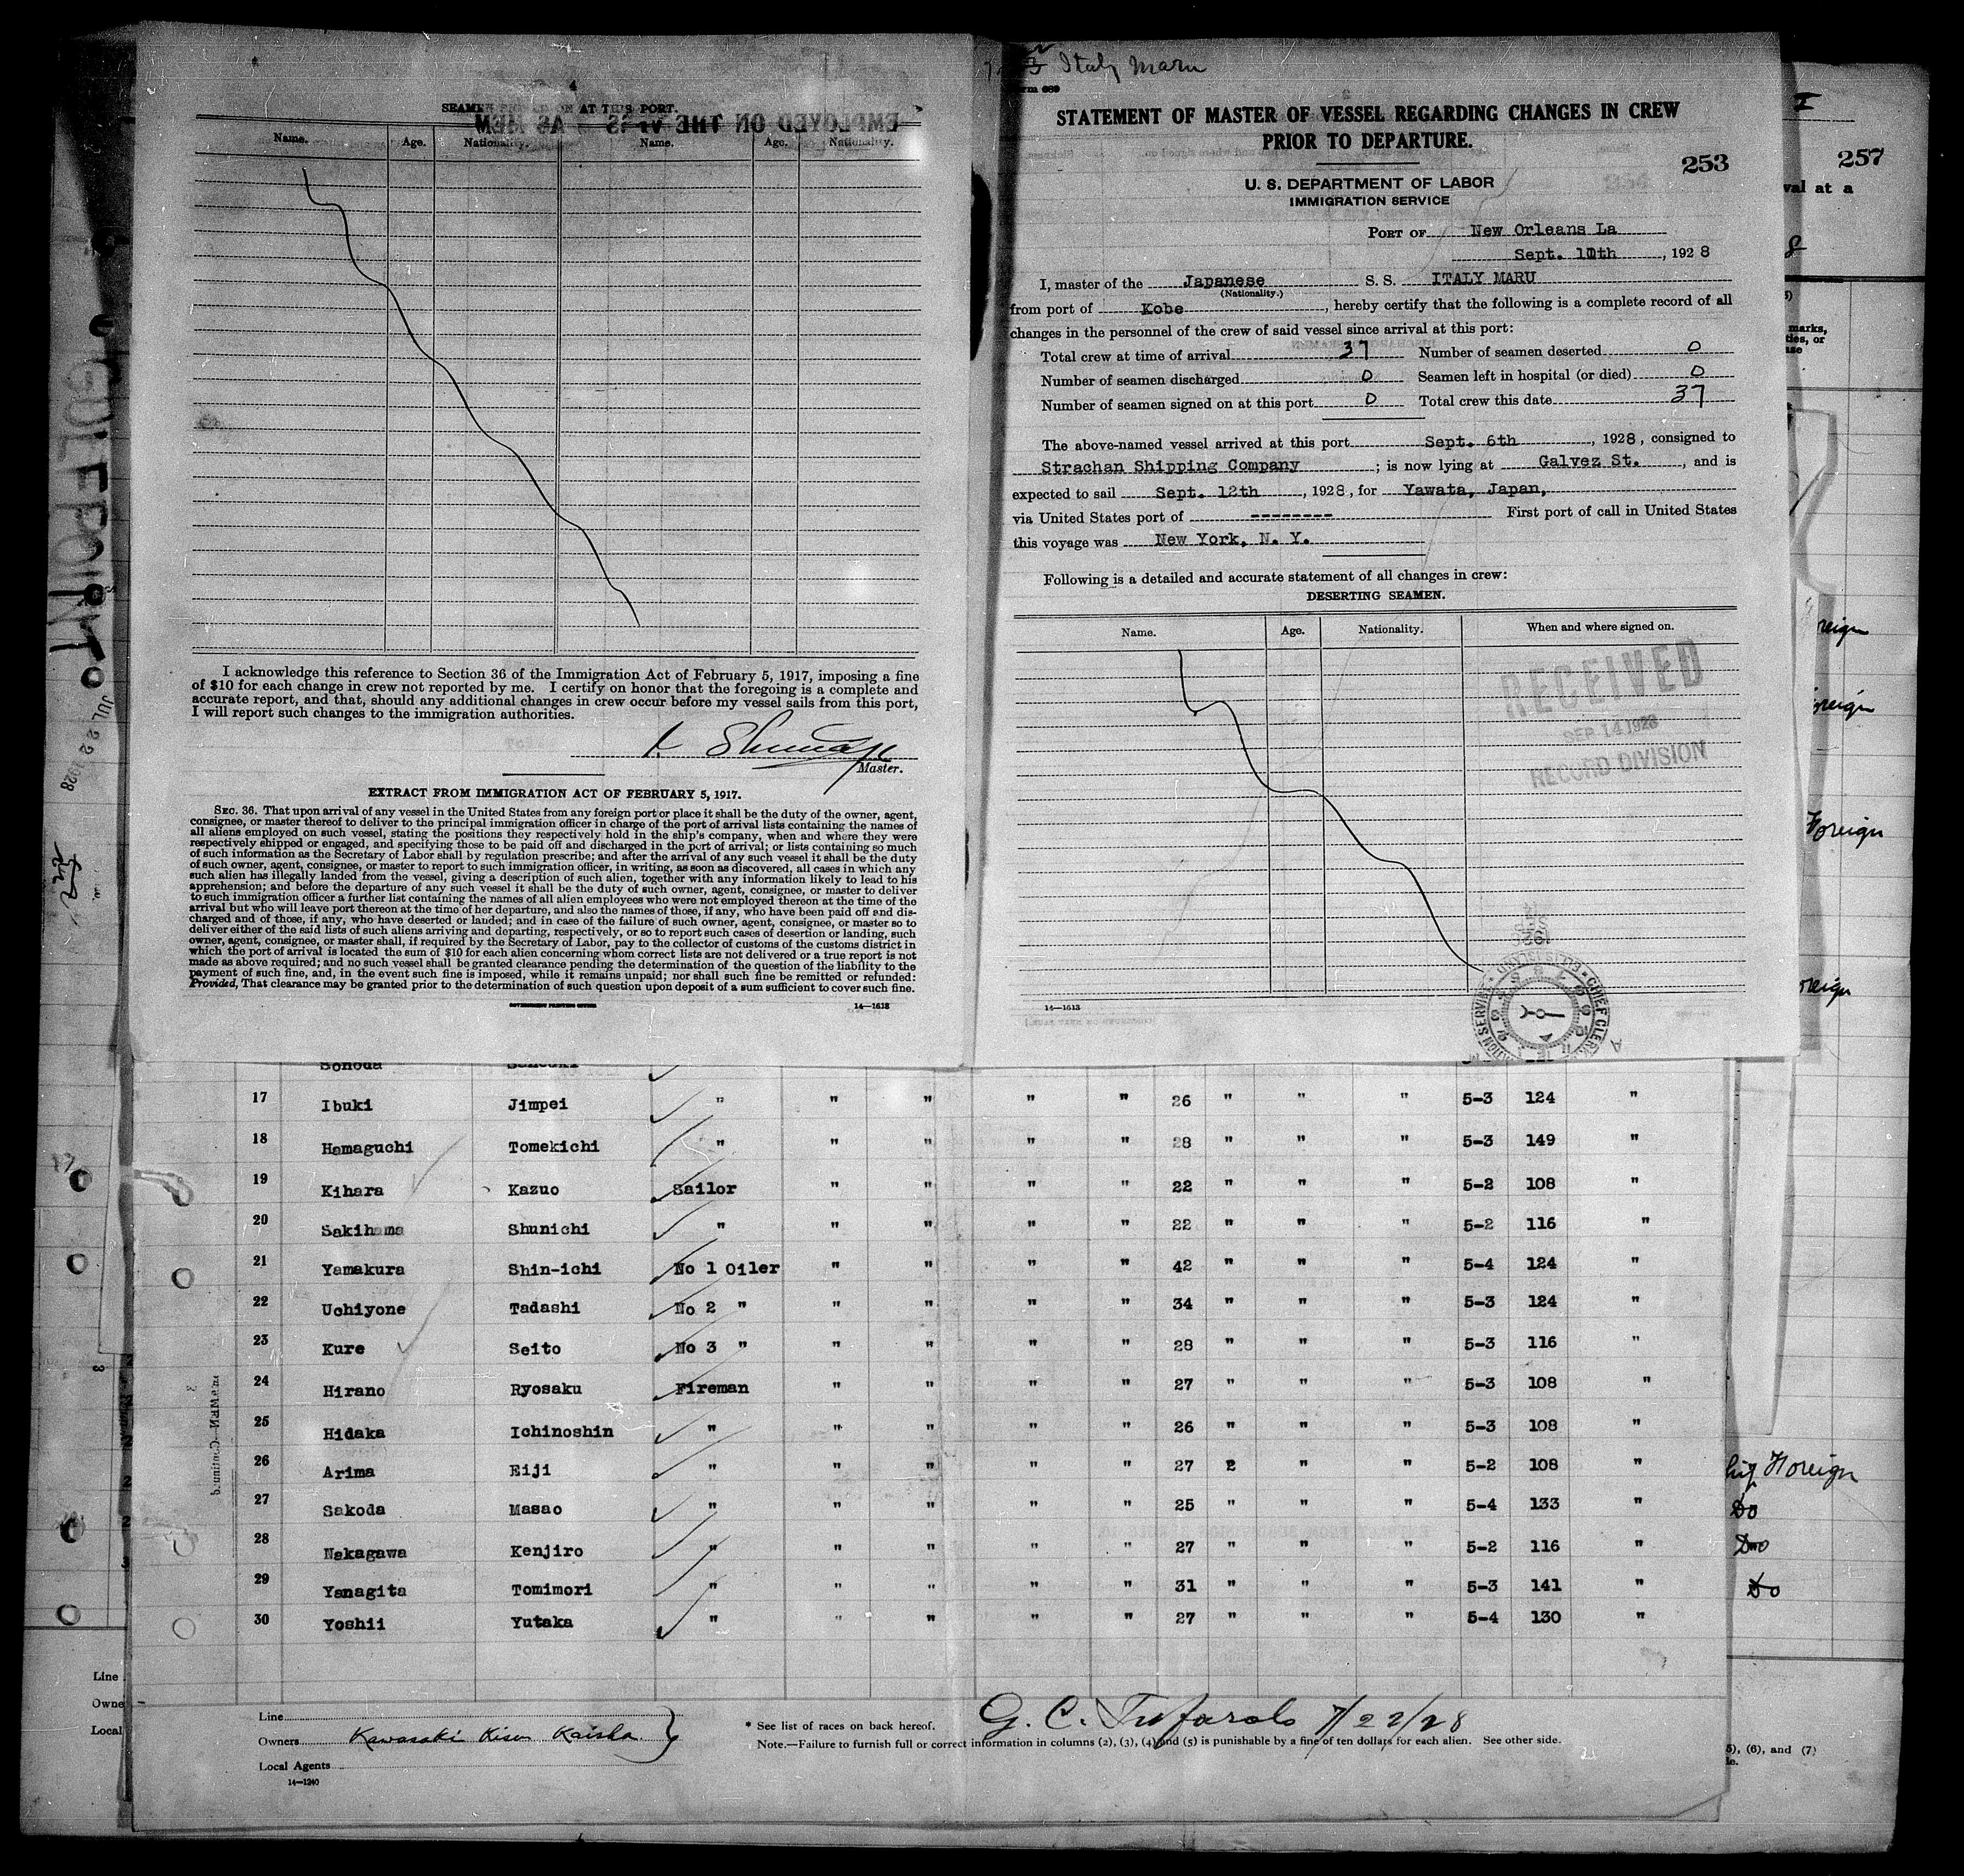 SEAMEN SIGNED ON AT THIS PORT.
Name. Age. Nationality. Name. Age. Nationality.
I acknowledge this reference to Section 36 of the Immigration Act of February 5, 1917, imposing a fine
of $10 for each change in crew not reported by me. I certify on honor that the foregoing is a complete and
accurate report, and that, should any additional changes in crew occur before my vessel sails from this port,
I will report such changes to the immigration authorities.
Master.
EXTRACT FROM IMMIGRATION ACT OF FEBRUARY 5, 1917.
SEC. 36. That upon arrival of any vessel in the United States from any foreign port or place it shall be the duty of the owner, agent,
consignee, or master thereof to deliver to the principal immigration officer in charge of the port of arrival lists containing the names of
all aliens employed on such vessel, stating the positions they respectively hold in the ship's company, when and where they were
respectively shipped or engaged, and specifying those to be paid off and discharged in the port of arrival; or lists containing so much
of such information as the Secretary of Labor shall by regulation prescribe; and after the arrival of any such vessel it shall be the duty
of such owner, agent, consignee, or master to report to such immigration officer, in writing, as soon as discovered, all cases in which any
such alien has illegally landed from the vessel, giving a description of such alien, together with any information likely to lead to his
apprehension; and before the departure of any such vessel it shall be the duty of such owner, agent, consignee, or master to deliver
to such immigration officer a further list containing the names of all alien employees who were not employed thereon at the time of the
arrival but who will leave port thereon at the time of her departure, and also the names of those, if any, who have been paid off and dis-
charged and of those, if any, who have deserted or landed; and in case of the failure of such owner, agent, consignee, or master so to
deliver either of the said lists of such aliens arriving and departing, respectively, or so to report such cases of desertion or landing, such
owner, agent, consignee, or master shall, if required by the Secretary of Labor, pay to the collector of customs of the customs district in
which the port of arrival is located the sum of $10 for each alien concerning whom correct lists are not delivered or a true report is not
made as above required; and no such vessel shall be granted clearance pending the determination of the question of the liability to the
payment of such fine, and, in the event such fine is imposed, while it remains unpaid; nor shall such fine be remitted or refunded:
Provided, That clearance may be granted prior to the determination of such question upon deposit of a sum sufficient to cover such fine.
GOVERNMENT PRINTING OFFICE 14—1613
Italy Maru
STATEMENT OF MASTER OF VESSEL REGARDING CHANGES IN CREW
PRIOR TO DEPARTURE.
253
U. S. DEPARTMENT OF LABOR
IMMIGRATION SERVICE
PORT OF New Orleans La
Sept. 10th, 1928
I, master of the Japanese S. S. ITALY MARU
(Nationality.)
from port of Kobe, hereby certify that the following is a complete record of all
changes in the personnel of the crew of said vessel since arrival at this port:
Total crew at time of arrival 37 Number of seamen deserted 0
Number of seamen discharged 0 Seamen left in hospital (or died) 0
Number of seamen signed on at this port 0 Total crew this date 37
The above-named vessel arrived at this port Sept. 6th, 1928, consigned to
Strachan Shipping Company; is now lying at Galvez St., and is
expected to sail Sept. 12th, 1928, for Yawata, Japan,
via United States port of -------- First port of call in United States
this voyage was New York, N. Y.
Following is a detailed and accurate statement of all changes in crew:
DESERTING SEAMEN.
Name. Age. Nationality. When and where signed on.
RECEIVED
SEP 14 1928
RECORD DIVISION
14—1613
257
val at a
marks,
GULFPORT
JUL 22 1928
Foreign
Foreign
Foreign
Foreign
Sonoda
17 Ibuki Jimpei " " " " " 26 " " " 5-3 124 "
18 Hamaguchi Tomekichi " " " " " 28 " " " 5-3 149 "
19 Kihara Kazuo Sailor " " " " 22 " " " 5-2 108 "
20 Sakihama Shunichi " " " " " 22 " " " 5-2 116 "
21 Yamakura Shin-ichi No 1 Oiler " " " " 42 " " " 5-4 124 "
22 Uchiyone Tadashi No 2 " " " " " 34 " " " 5-3 124 "
23 Kure Seito No 3 " " " " " 28 " " " 5-3 116 "
24 Hirano Ryosaku Fireman " " " " 27 " " " 5-3 108 "
25 Hidaka Ichinoshin " " " " " 26 " " " 5-3 108 "
26 Arima Eiji " " " " " 27 2 " " 5-2 108 "
27 Sakoda Masao " " " " " 25 " " " 5-4 133 "
28 Nakagawa Kenjiro " " " " " 27 " " " 5-2 116 "
29 Yanagita Tomimori " " " " " 31 " " " 5-3 141 "
30 Yoshii Yutaka " " " " " 27 " " " 5-4 130 "
Foreign
Do
Do
Do
Line
Owners Kawasaki Kisen Kaisha
Local Agents
14—1240
* See list of races on back hereof.
G. C. 7/22/28
Note.—Failure to furnish full or correct information in columns (2), (3), (4) and (5) is punishable by a fine of ten dollars for each alien. See other side.
5), (6), and (7)
Line
Owne
Local